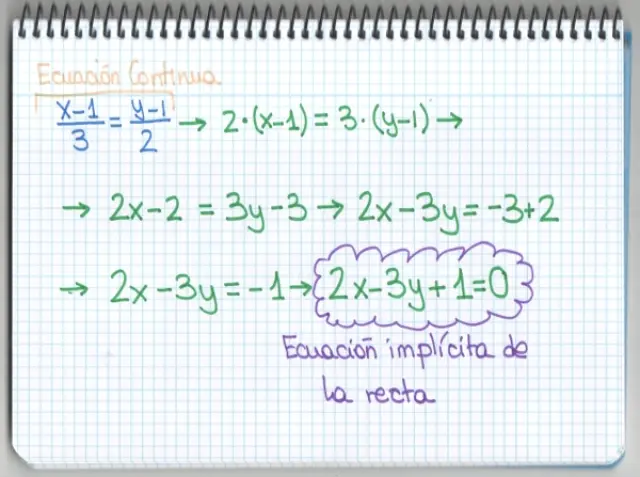 Ecuación Continua
x-1/3 = y-1/2 → 2·(x-1) = 3·(y-1) →
→ 2x-2 = 3y-3 → 2x-3y = -3+2
→ 2x-3y = -1 → 2x-3y+1=0
Ecuación implícita de
la recta